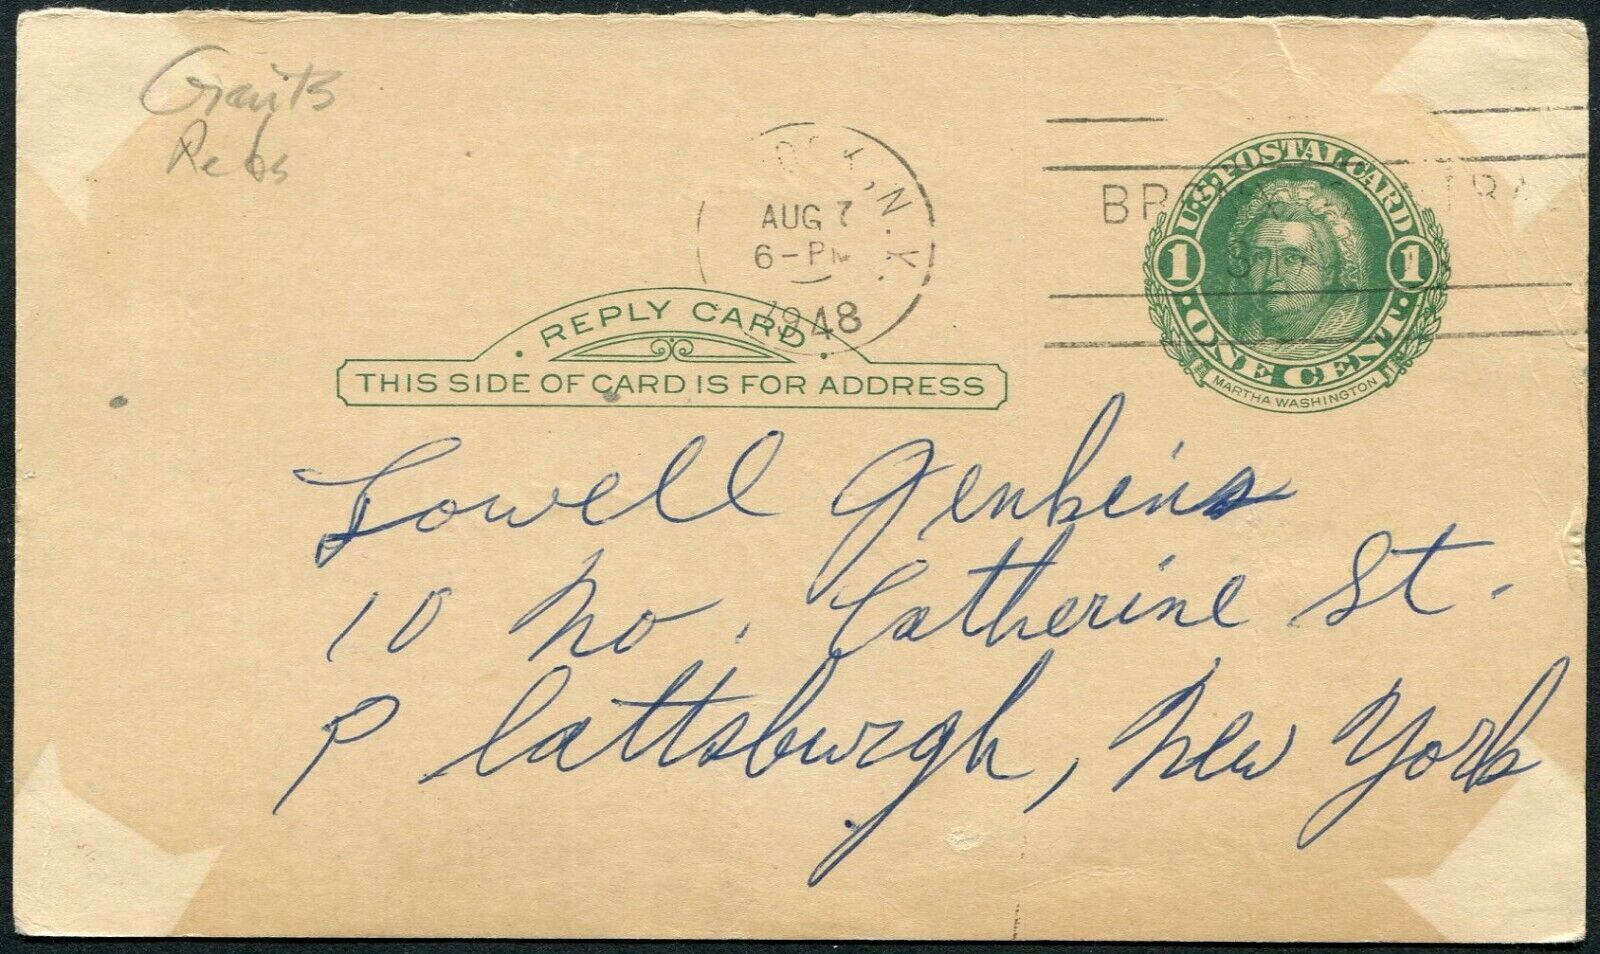 Giants
Reds
N.Y.
AUG 7
6-PM
1948
U.S. POSTAL CARD
1 1
ONE CENT
MARTHA WASHINGTON
REPLY CARD
THIS SIDE OF CARD IS FOR ADDRESS
Lowell Jenkins
10 No. Catherine St.
Plattsburgh, New York